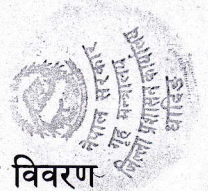 नेपाल सरकार
गृह मन्त्रालय
जिल्ला प्रशासन कार्यालय
धादिङ
विवरण